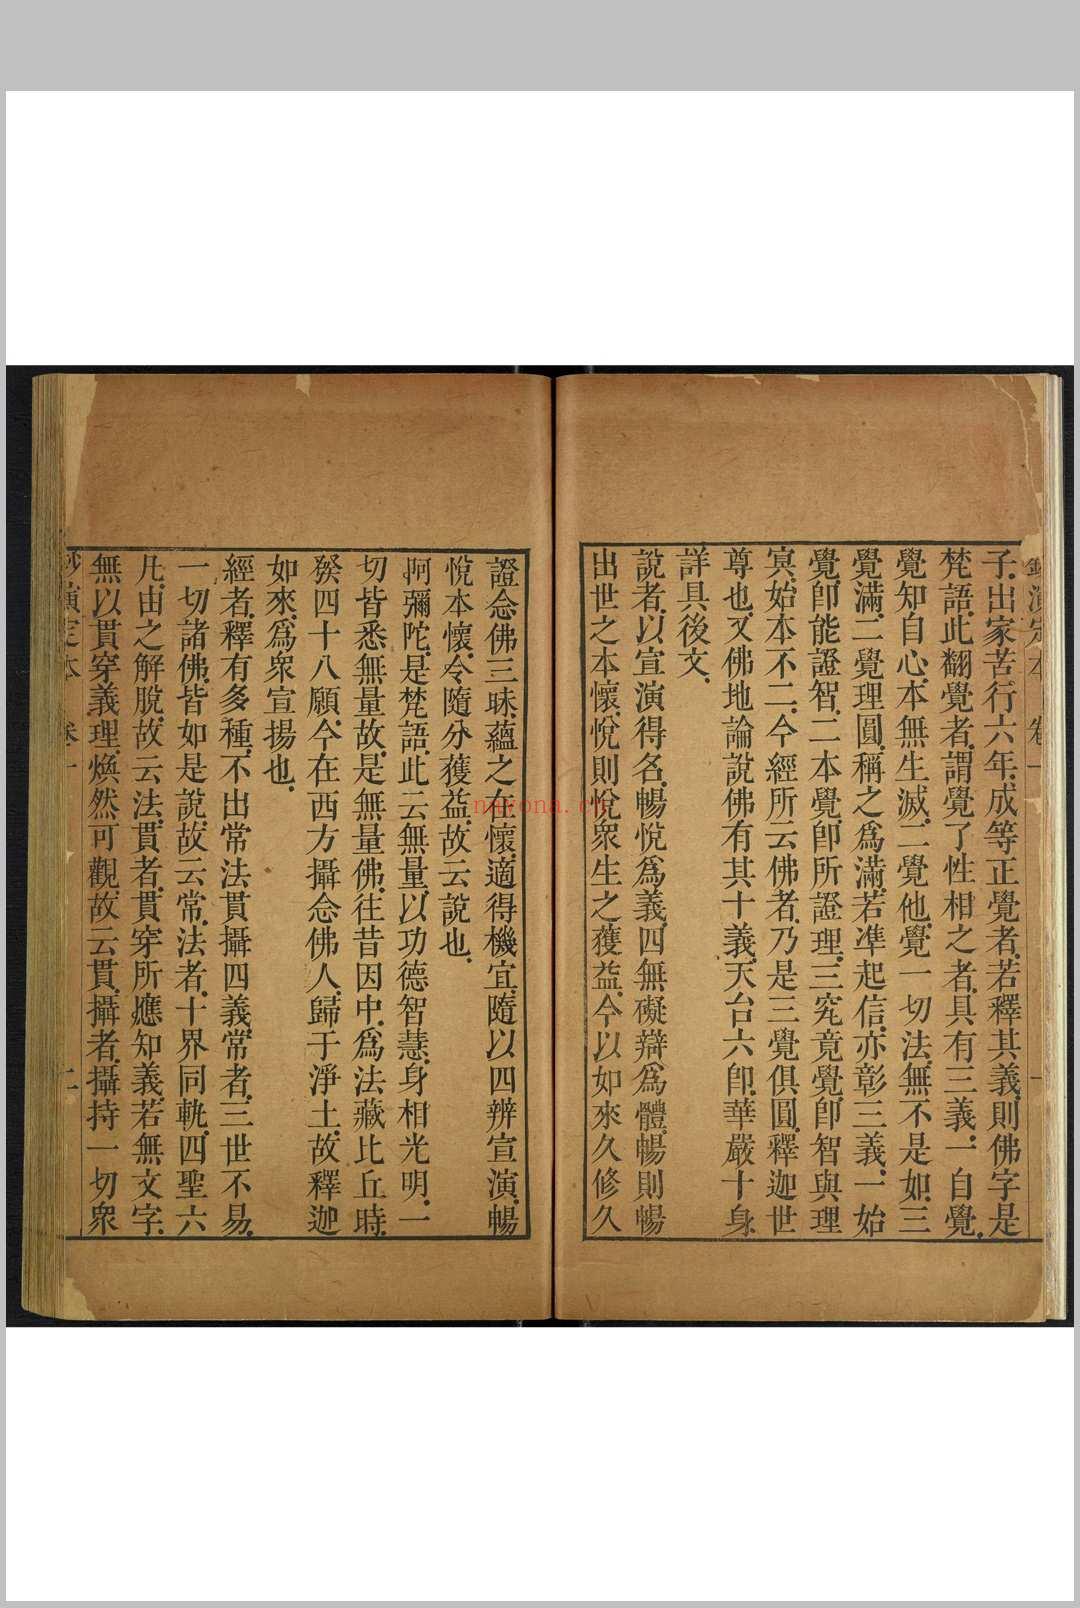 子.出家苦行六年.成等正覺者.若釋其義.則佛字是
梵語.此翻覺者.謂覺了性相之者.具有三義.一自覺.
覺知自心.本無生滅.二覺他.覺一切法.無不是如.三
覺滿.二覺理圓.稱之爲滿.若準起信.亦彰三義.一始
覺.卽能證智.二本覺.卽所證理.三究竟覺.卽智與理
冥.始本不二.今經所云佛者.乃是三覺俱圓.釋迦世
尊也.又佛地論說佛有其十義.天台六卽.華嚴十身.
詳具後文.
說者.以宣演得名.暢悅爲義.四無礙辯爲體.暢則暢
出世之本懷.悅則悅衆生之獲益.今以如來久修久
證念佛三昧.蘊之在懷.適得機宜.隨以四辨宣演.暢
悅本懷.令隨分獲益.故云說也.
阿彌陀.是梵語.此云無量.以功德智慧.身相光明.一
切皆悉無量故.是無量佛.往昔因中.爲法藏比丘時.
發四十八願.今在西方攝念佛人.歸于淨土.故釋迦
如來.爲衆宣揚也.
經者.釋有多種.不出常法貫攝四義.常者.三世不易.
一切諸佛.皆如是說.故云常.法者.十界同軌.四聖六
凡.由之解脫.故云法.貫者.貫穿所應知義.若無文字.
無以貫穿義理.煥然可觀.故云貫.攝者.攝持一切衆
鈔演定本 卷一 二
nayona.cn